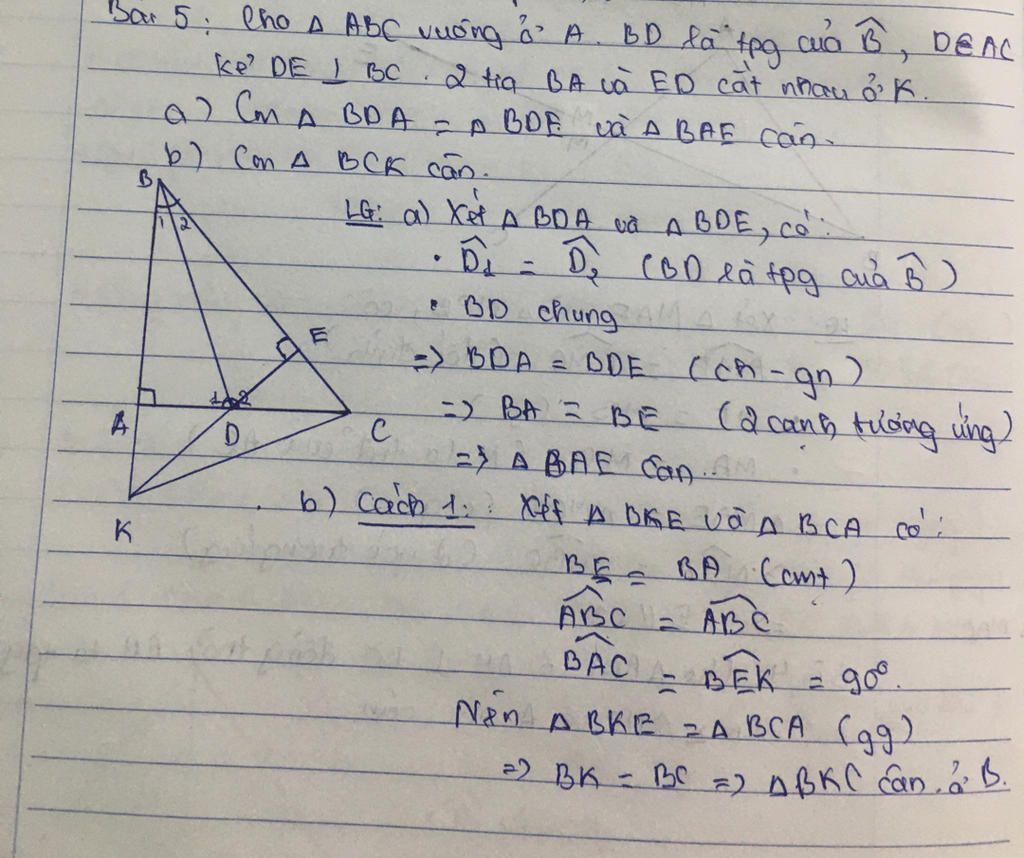 Bài 5: Cho Δ ABC vuông ở A. BD là tpg của B̂, D∈AC
Kẻ DE ⊥ BC. 2 tia BA và ED cắt nhau ở K.
a) Cm Δ BDA = Δ BDE và Δ BAE cân.
b) Cm Δ BCK cân.
B
1 2
E
A
1 2
D
C
K
LG: a) Xét Δ BDA và Δ BDE, có:
• D̂₁ = D̂₂ (BD là tpg của B̂)
• BD chung
=> BDA = BDE (ch - gn)
=> BA = BE (2 cạnh tương ứng)
=> Δ BAE cân.
b) Cách 1: Xét Δ BKE và Δ BCA có:
BE = BA (cmt)
ABĈ = ABĈ
BAĈ = BEK̂ = 90°.
Nên Δ BKE = Δ BCA (gg)
=> BK = BC => Δ BKC cân ở B.